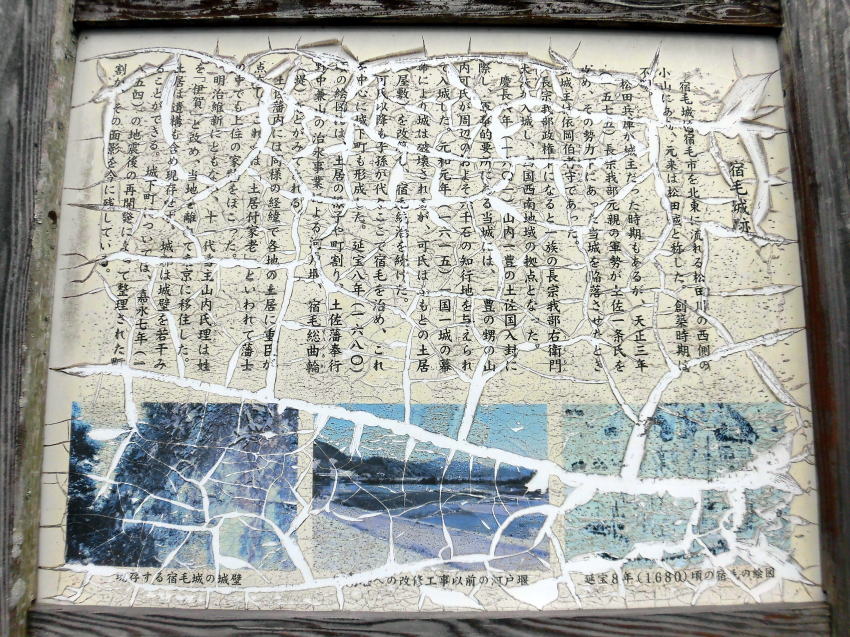 宿毛城跡
宿毛城 宿毛市を北東に流れる松田川の西側の
小山にあ 元来は松田城と称した 創築時期は
不
松田兵庫が城主だった時期もあるが 天正三年
五七五）長宗我部元親の軍勢が土佐一条氏を
攻め、その勢力下にあった当城を陥落させたとき
城主は依岡伯耆守であった。
長宗我部政権下になると一族の長宗我部右衛門
入城し、当国西南地域の拠点となった。
慶長六年（一六〇一）山内一豊の土佐国入封に
際し 要 たる当城には、一豊の甥の山
内可氏が周辺のおよそ六千石の知行地を与えられ
て入城した。元和元年（一六一五）一国一城の幕
命により城は破壊されるが、可氏はふもとの土居
屋敷）を改修し、宿毛統治を続けた。
可氏以降も子孫が代々ここで宿毛を治め、これ
を中心に城下町も形成された。延宝八年（一六八〇）
の絵図には、土居の様子や町割り、土佐藩奉行
野中兼山の治水事業による河戸堰、宿毛総曲輪
堤）などがみてとれる。
土佐藩内には同様の経緯で各地の土居に重臣が
点 土居付家老 といわれて藩士
の中でも上位の家 をほこった。
明治維新にともな 十 代 主山内氏理は姓
を「伊賀」と改め、当地を離れて東京に移住した。
土居は遺構も含め現存せず、城郭は城壁を若干み
ることができる。城下町については、嘉永七年（一
五四）の地震後の再開発によって整理された町
割が その面影を今に残している。
現存する宿毛城の城壁
への改修工事以前の河戸堰
延宝8年（1680）頃の宿毛の絵図